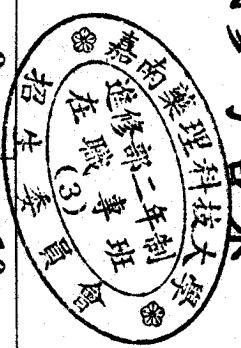 嘉南藥理科技大學
進修部二年制
在職專班
(3)
招生委員會